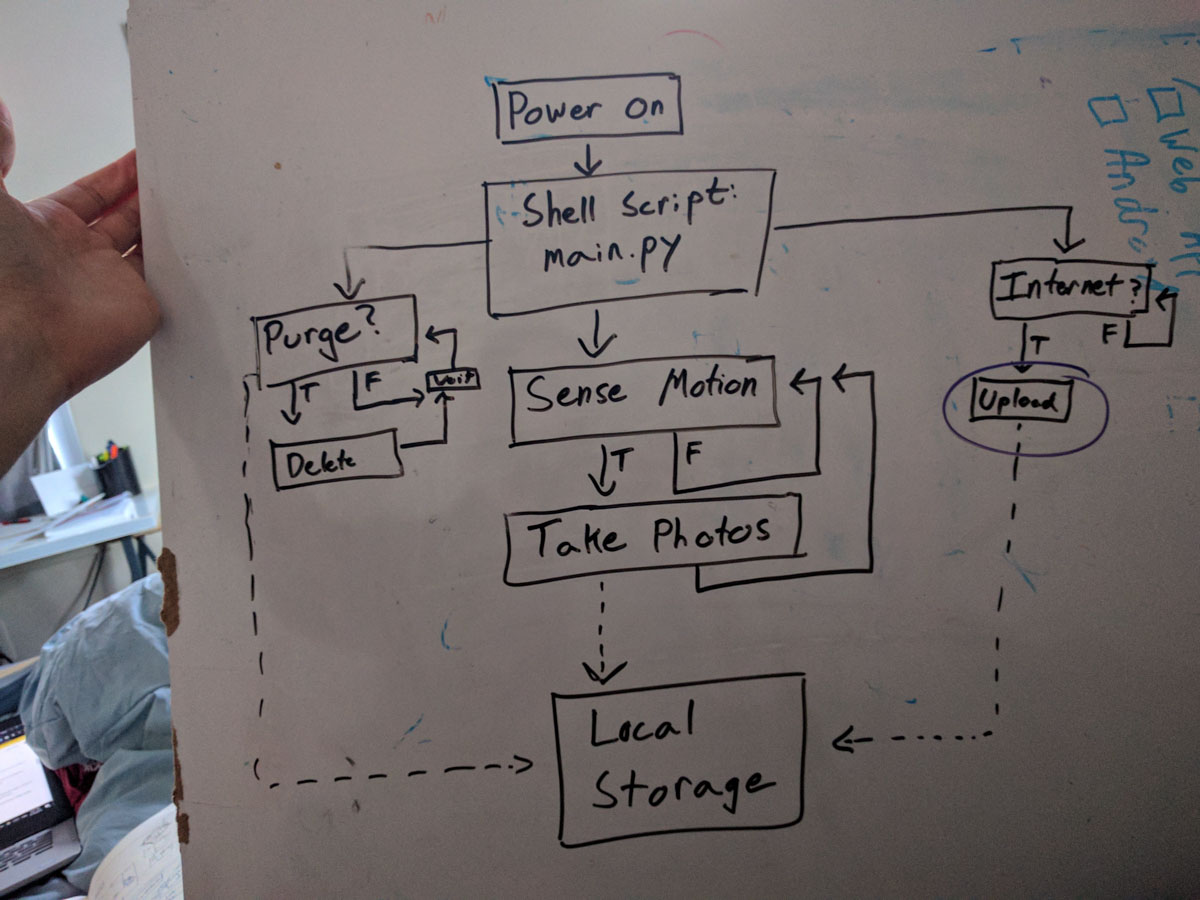 Power on
Shell Script:
main.py
Purge?
T
F
Wait
Delete
Sense Motion
T
F
Take Photos
Internet?
T
F
Upload
Local
Storage
Web